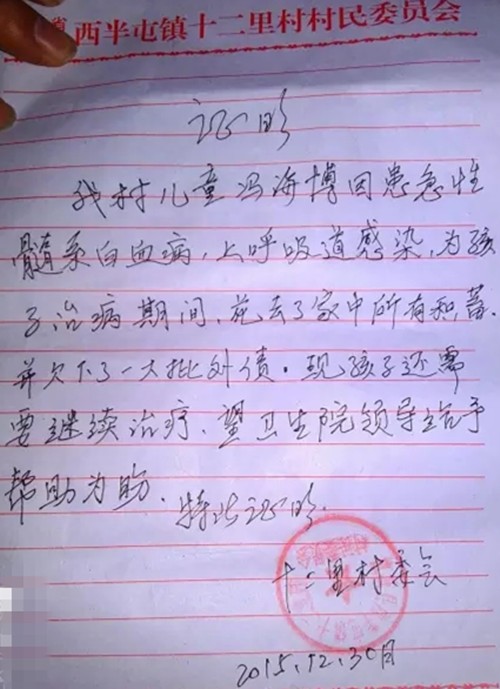 西半屯镇十二里村村民委员会
证明
我村儿童冯海博因患急性
髓系白血病，上呼吸道感染，为孩
子治病期间，花去了家中所有积蓄.
并欠下了一大批外债。现孩子还需
要继续治疗、望卫生院领导给予
帮助为盼. 特此证明.
十二里村委会
2015.12.30日